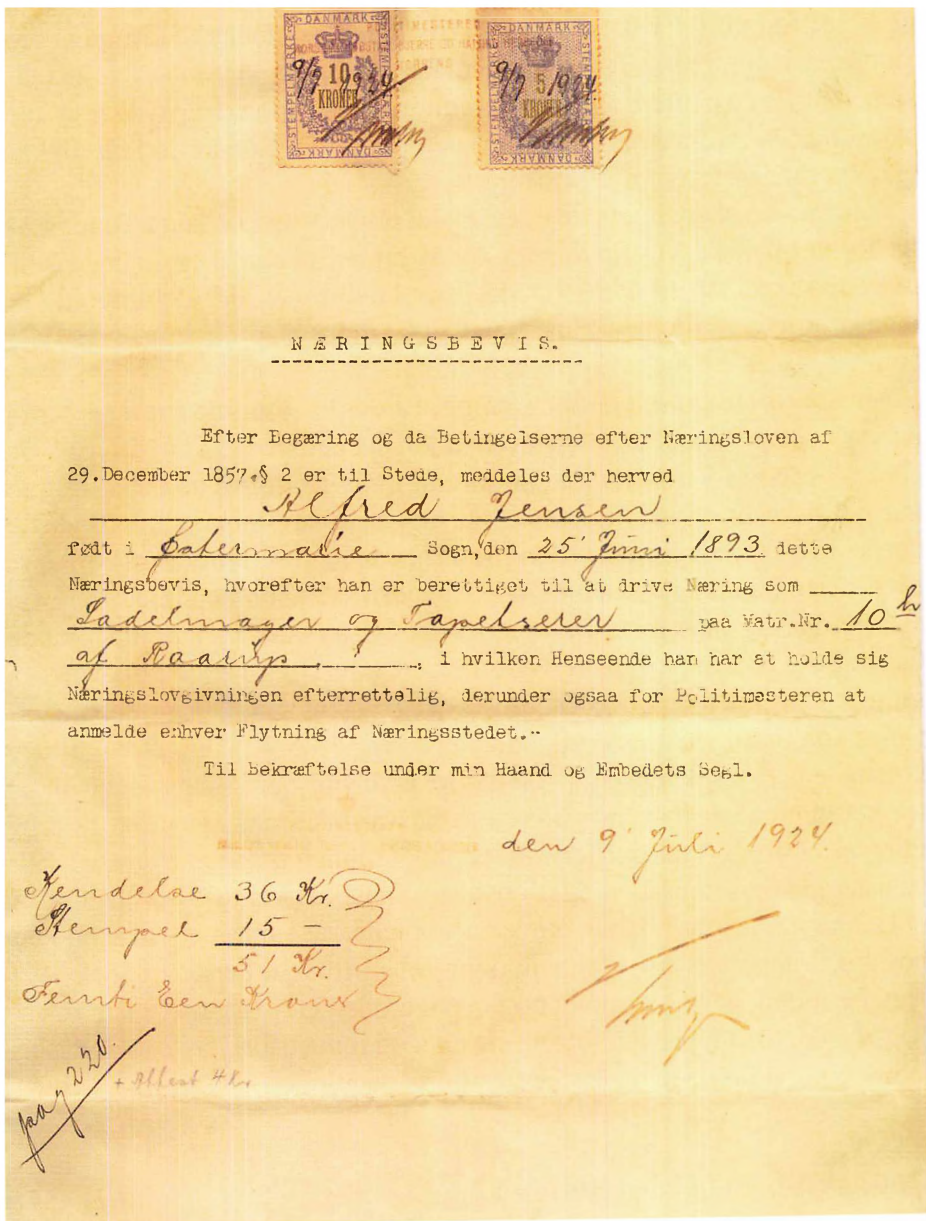 DANMARK DANMARK
STEMPELMARKE STEMPELMARKE
9/7 1924 9/7 1924
10 KRONER 5 KRONER
DANMARK DANMARK
NÆRINGSBEVIS.
Efter Begæring og da Betingelserne efter Næringsloven af
29.December 1857.§ 2 er til Stede, meddeles der herved
Alfred Jensen
født i Østermarie Sogn, den 25' Juni 1893 dette
Næringsbevis, hvorefter han er berettiget til at drive Næring som
Sadelmager og Tapetserer paa Matr.Nr. 10 h
af Raarup. , i hvilken Henseende han har at holde sig
Næringslovgivningen efterrettelig, derunder ogsaa for Politimesteren at
anmelde enhver Flytning af Næringsstedet.-
Til Bekræftelse under min Haand og Embedets Segl.
den 9' Juli 1924.
Kendelse 36 Kr.
Stempel 15 -
51 Kr.
Femti Een Kroner
220.
+ Attest 4 Kr.